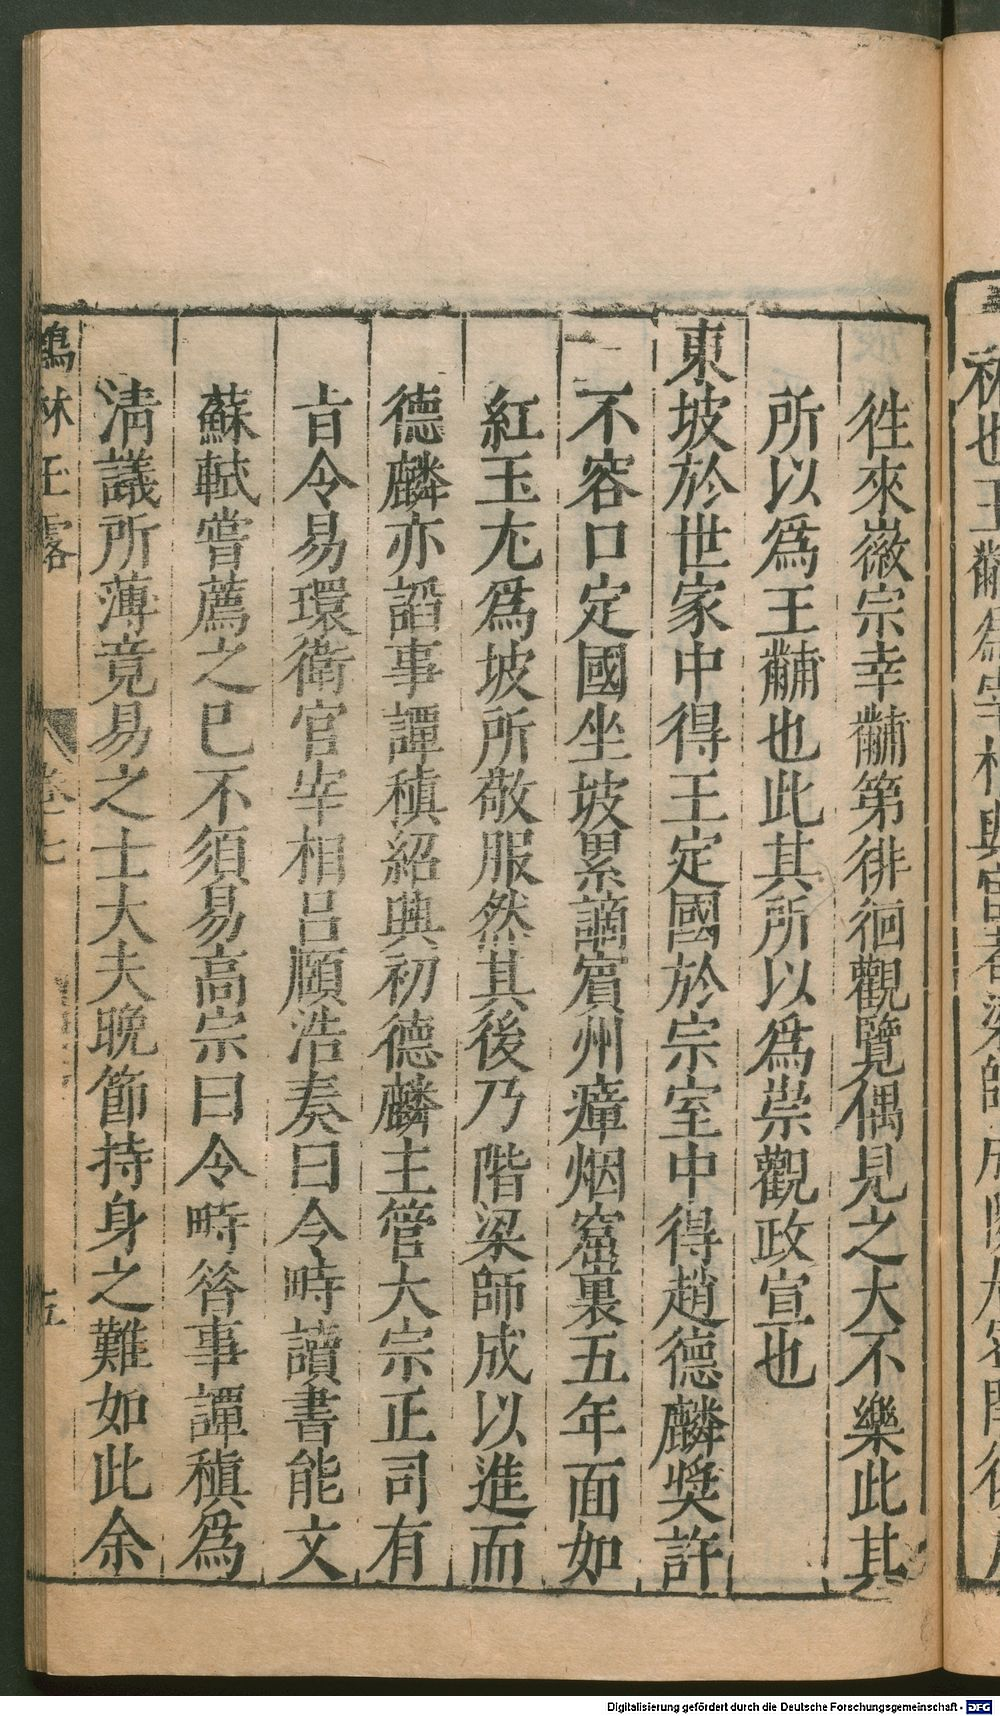 徃來徽宗幸黼第徘徊觀覽偶見之大不樂此其
所以爲王黼也此其所以爲崇觀政宣也
東坡於世家中得王定國於宗室中得趙德麟奨許
不容口定國坐坡累謫賔州瘴烟窟裏五年面如
紅玉尤爲坡所敬服然其後乃階梁師成以進而
德麟亦謟事譚稹紹興初德麟主管大宗正司有
㫖令易環衛官宰相吕頤浩奏曰令畤讀書能文
蘇軾嘗薦之巳不須易高宗曰令畤昝事譚稹爲
清議所薄竟易之士大夫晩節持身之難如此余
鶴林玉露
卷七
五
秘也王黼爲宰相與宦者梁師成
Digitalisierung gefördert durch die Deutsche Forschungsgemeinschaft - DFG